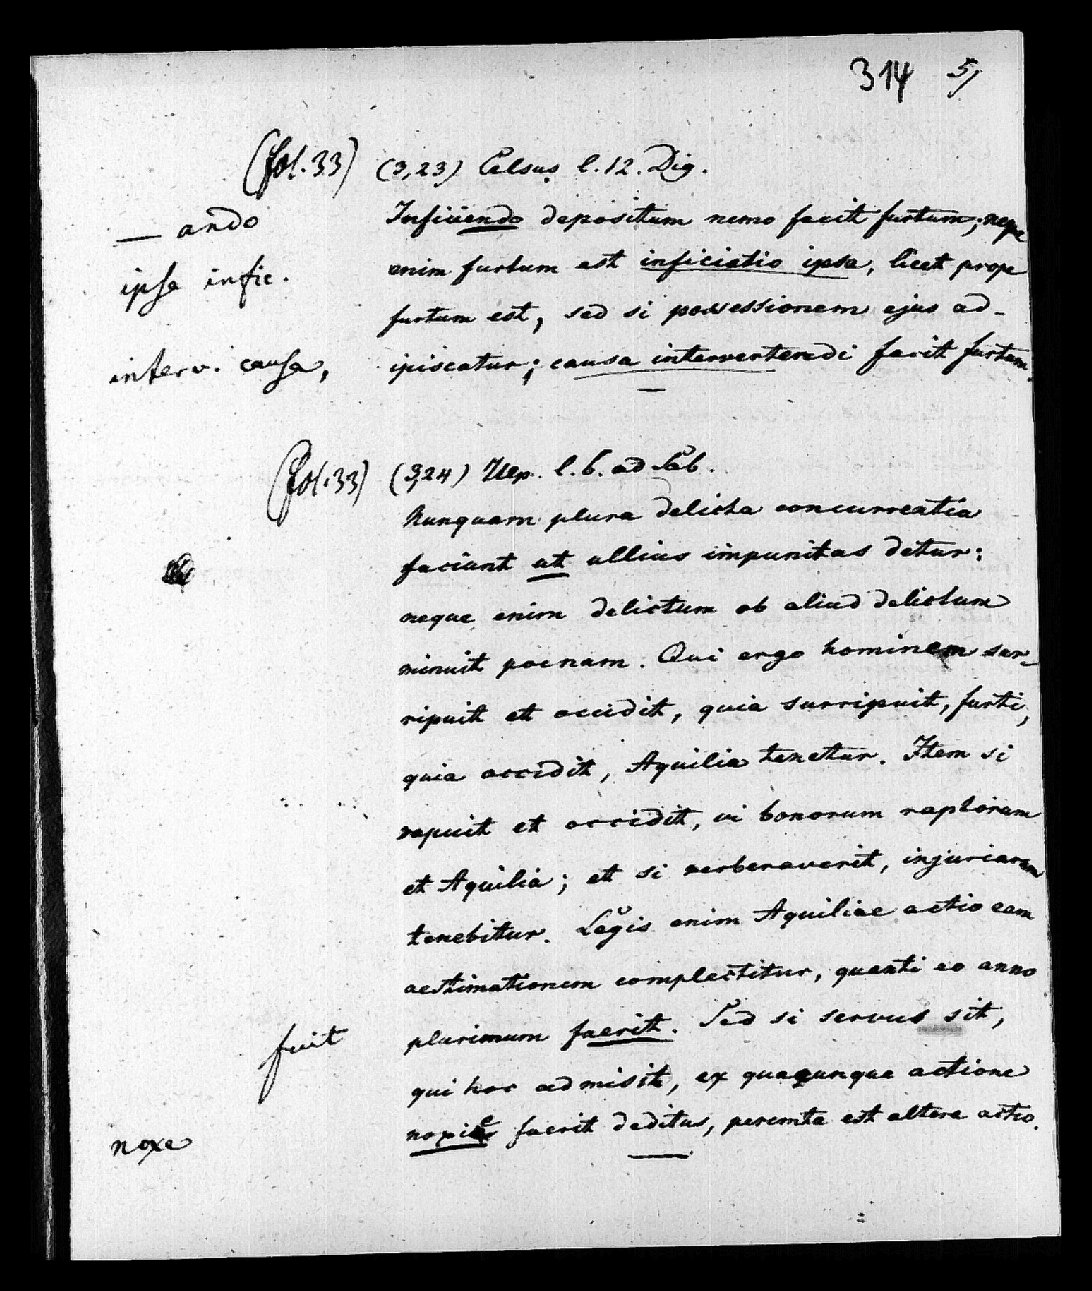 314 5)
(fol. 33) (3,23) Celsus l. 12. Dig.
— ando Inficiendo depositum nemo facit furtum; neque
ipsa infic. enim furtum est inficiatio ipsa, licet prope
furtum est, sed si possessionem ejus ad-
interv. causa, ipiscatur; causa intervertendi facit furtum.
(fol. 33) (3,24) Ulp. l. 6. ad Sab.
Nunquam plura delicta concurrentia
faciunt ut ullius impunitas detur:
neque enim delictum ob aliud delictum
minuit poenam. Qui ergo hominem sur-
ripuit et occidit, quia surripuit, furti,
quia occidit, Aquilia tenetur. Item si
rapuit et occidit, vi bonorum raptorum
et Aquilia; et si verberaverit, injuriarum
tenebitur. Legis enim Aquiliae actio eam
aestimationem complectitur, quanti eo anno
fuit plurimum fuerit. Sed si servus sit,
qui hoc admisit, ex quacunque actione
noxe fuerit deditus, peremta est altera actio.